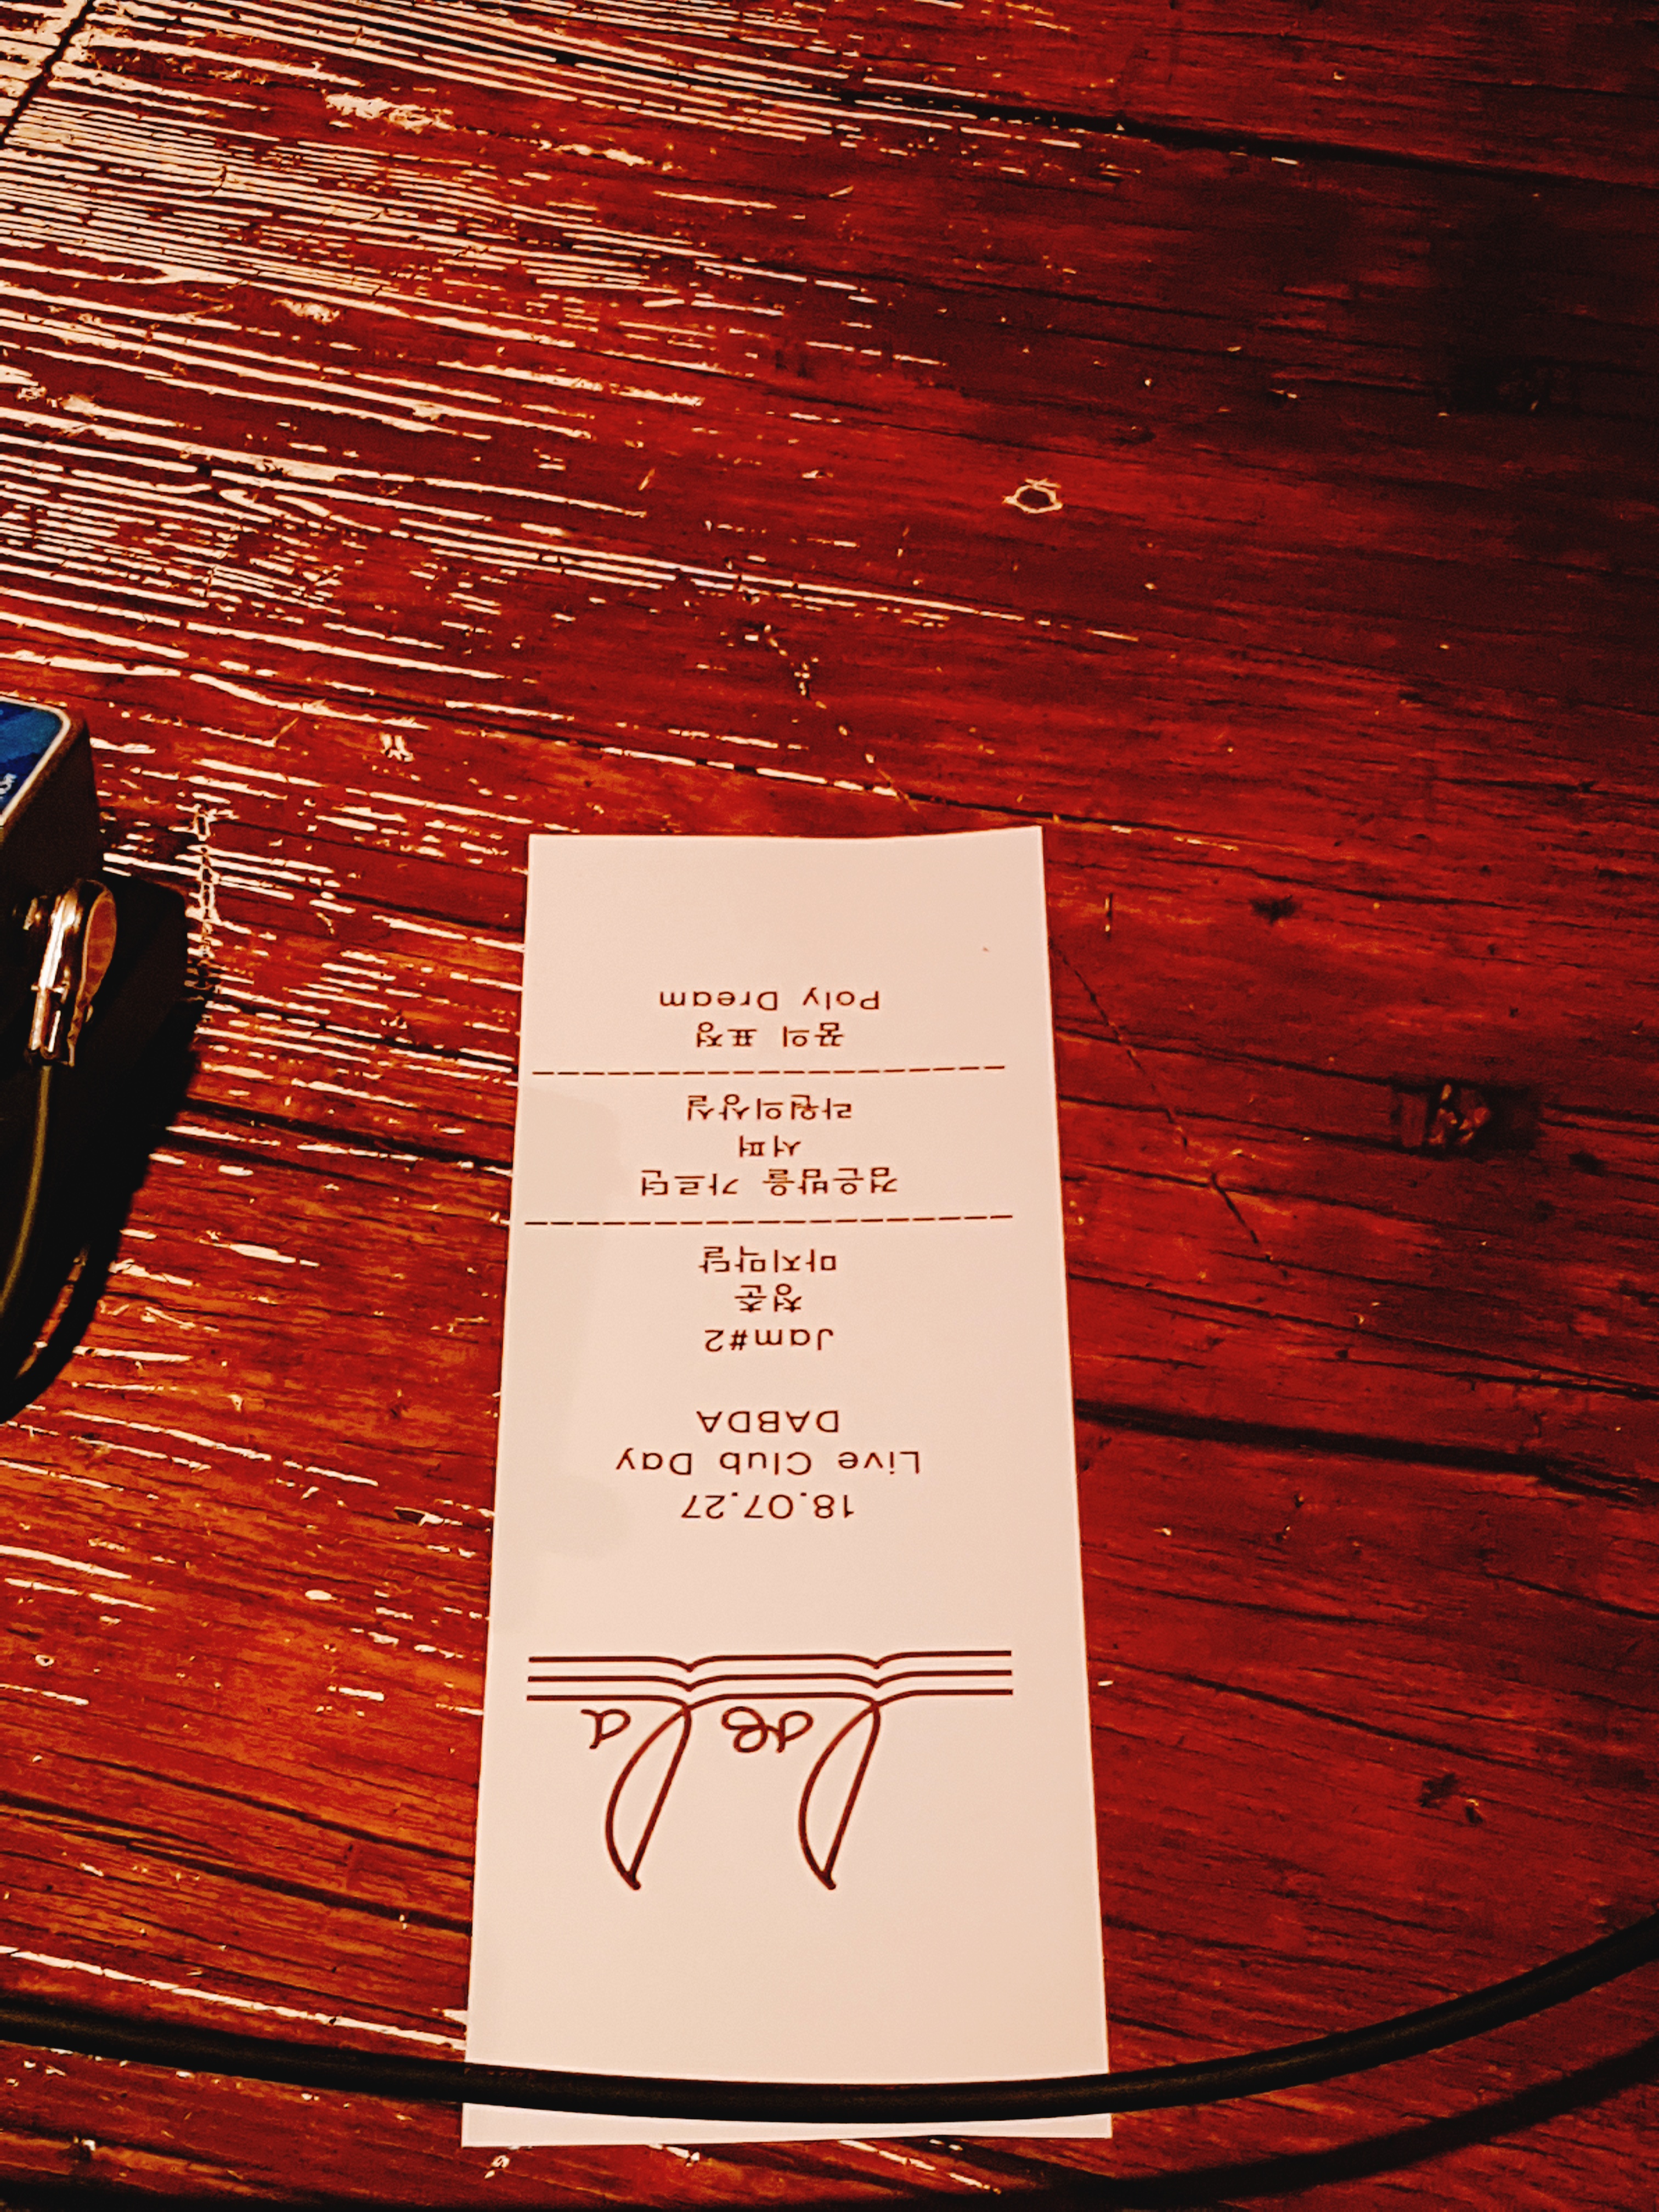 18.07.27
Live Club Day
DABDA
Jam#2
청춘
마지막달
검은밤을 가르던
서퍼
라원의상실
꿈의 표정
Poly Dream